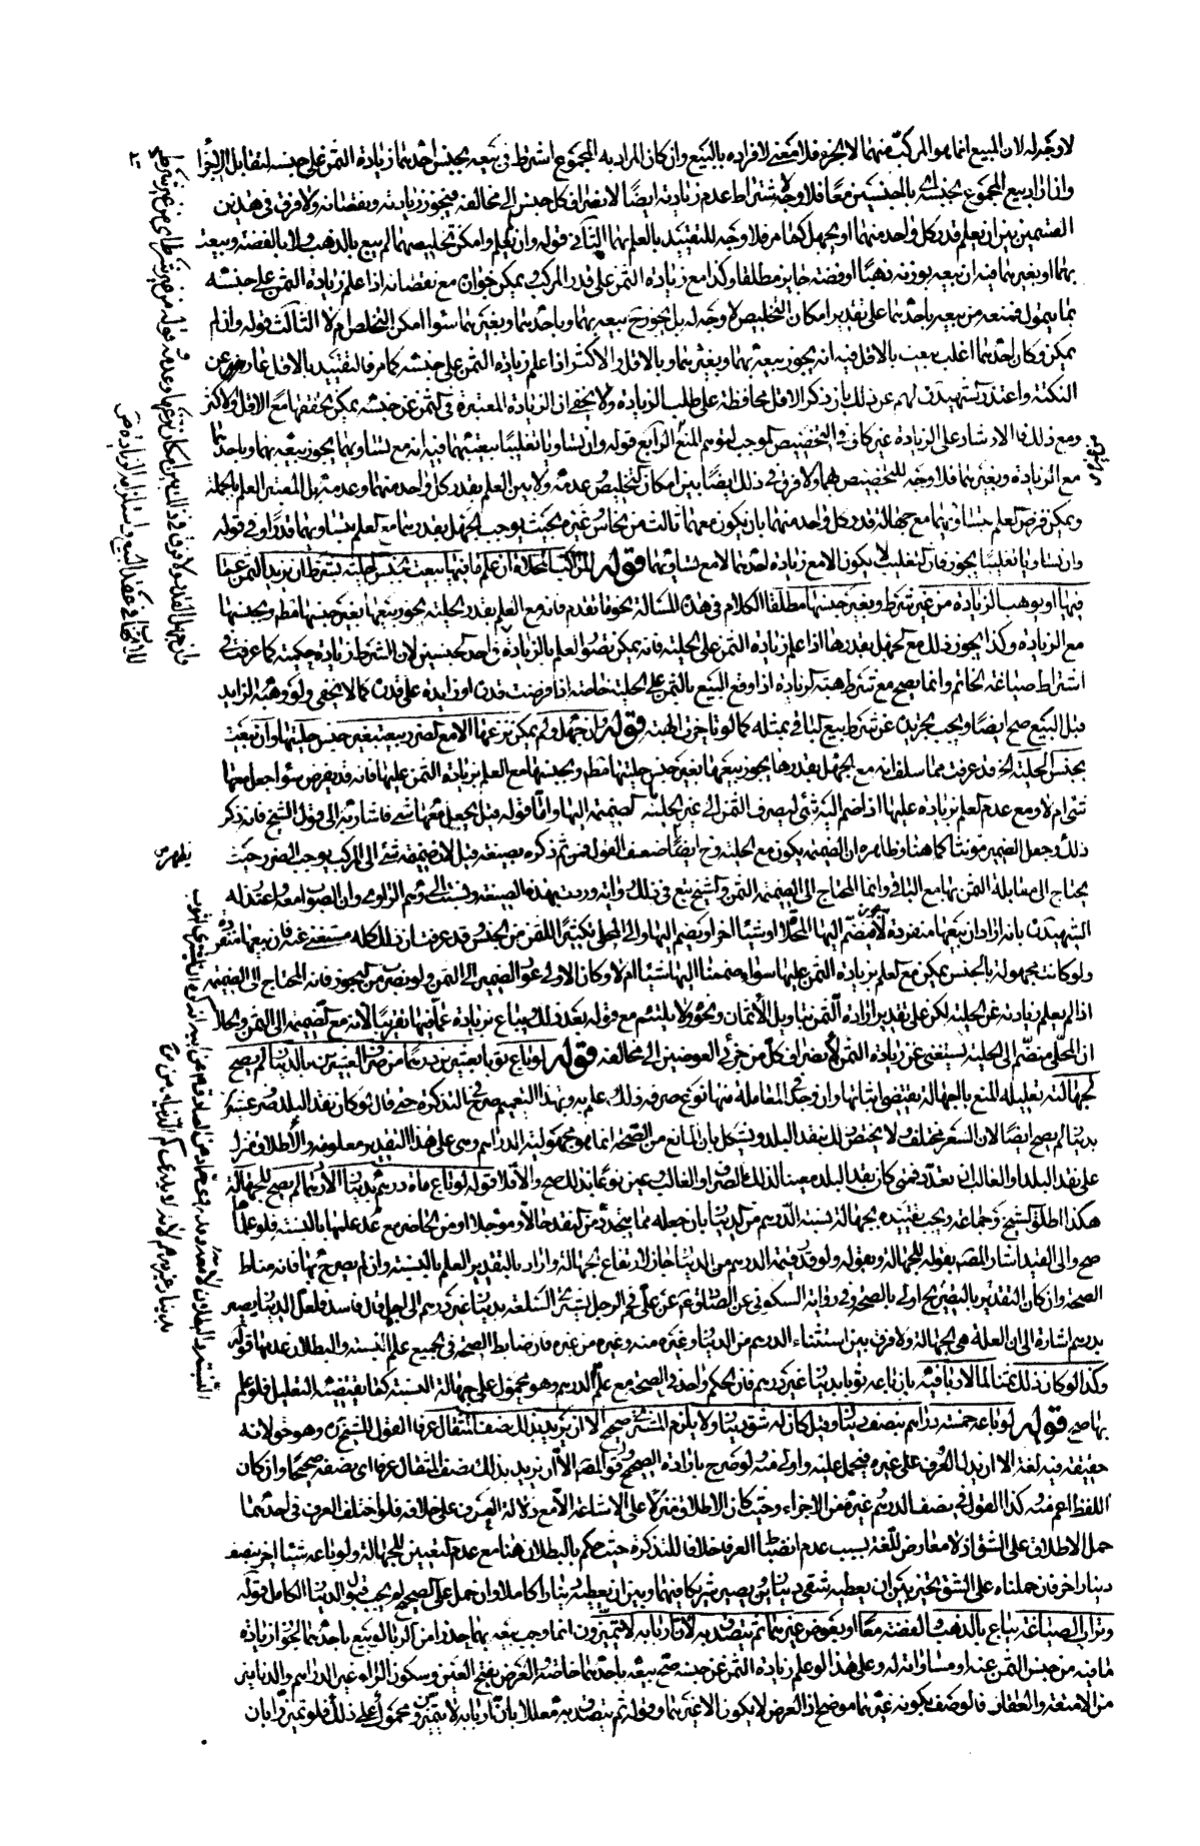 لا وجه له لان المبيع انما هو المركب منهما لا الجزء فلا معنى لافراده بالبيع وان كان المراد به المجموع اشترط في بيعه بجنس احدهما زيادة الثمن على جنسه لتقابل الاجزاء
وان اراد بيع المجموع بجنسه اى بالجنسين معا فلا وجه لاشتراط عدم زيادته ايضا لانصراف كل جنس الى مخالفه فيجوز زيادته ونقصانه ولا فرق في هذين
القسمين بين ان يعلم قدر كل واحد منهما او يجهل كما مر فلا وجه للتقييد بالعلم بهما الثاني قوله وان لم يعلم وامكن تخليصهما لم يبع بالذهب ولا بالفضة وبيعت
بهما او بغيرهما فيه ان بيعه بوزنه ذهبا او فضة جايز مطلقا وكذا مع زيادة الثمن على قدر المركب ويمكن جوازه مع نقصانه اذا علم زيادة الثمن على جنسه
بما يتمول فمنعه من بيعه باحدهما على تقدير امكان التخليص لا وجه له بل يجوز ح بيعه بهما وباحدهما وبغيرهما سواء امكن التخلص ام لا الثالث قوله وان لم
يمكن وكان احدهما اغلب بيعت بالاقل فيه انه يجوز بيعه بهما وبغيرهما وبالاقل والاكثر اذا علم زيادة الثمن على جنسه كما مر فالتقييد بالاقل عار عن
النكتة واعتذر الشهيد لهم عن ذلك بان ذكر الاقل محافظة على طلب الزيادة ولا يخفى ان الزيادة المعتبرة في الثمن عن جنسه يمكن تحققها مع الاقل والاكثر
ومع ذلك فالارشاد على الزيادة غير كاف في التخصيص الموجب لتوهم المنع الرابع قوله وان تساويا تغليبا بيعت بهما فيه انه مع تساويهما يجوز بيعه بهما وباحدهما
مع الزيادة وبغيرهما فلا وجه للتخصيص بهما ولا فرق في ذلك ايضا بين امكان التخليص وعدمه ولا بين العلم بقدر كل واحد منهما وعدمه بل المعتبر العلم بالجملة
ويمكن فرض العلم بتساويهما مع جهالة قدر كل واحد منهما بان يكون معهما ثالث من نحاس وغيره بحيث يوجب الجهل بقدرهما مع العلم بتساويهما قدرا وفي قوله
وان تساويا تغليبا تجوز فان التغليب لا يكون الا مع زيادة احدهما لا مع تساويهما قوله المراكب المحلاة ان علم ما فيها بيعت بجنس الحلية بشرط ان يزيد الثمن عما
فيها او يوهب الزيادة من غير شرط وبغير جنسها مطلقا الكلام في هذه المسالة نحو ما تقدم فانه مع العلم بقدر الحلية يجوز بيعها بغير جنسها فقط وبجنسها
مع الزيادة وكذا يجوز ذلك مع الجهل بقدرها اذا علم زيادة الثمن على الحلية فانه يمكن تصور العلم بالزيادة في احد الجنسين لان الشرط زيادة حكمية كما عرفت في
اشتراط صياغة الخاتم وانما يصح مع شرط هبة الزيادة اذا وقع البيع بالثمن على الحلية خاصة اذا فرضت قدره او زايدة على قدره كما لا يخفى ولو وهبه الزايد
قبل البيع صح ايضا ويجب تجريده عن شرط بيع الباقي بمثله كما لو تاخرت الهبة قوله وان جهل ولم يمكن نزعها الا مع الضرر بيعت بغير جنس حليتها وان بيعت
بجنس الحلية الخ قد عرفت مما سلف انه مع الجهل بقدرها يجوز بيعها بغير جنس حليتها فقط وبجنسها مع العلم بزيادة الثمن عليها فانه قد يفرض سواء جعل معها
شئ ام لا ومع عدم العلم بزيادة عليها اذا ضم اليه شئ ليصرف الثمن الى غير الحلية لضميمته اليها واما قوله قيل يجعل معها شئ فاشار به الى قول الشيخ فانه ذكر
ذلك وجعل الضمير مؤنثا كما هنا وظاهره ان الضميمة يكون مع الحلية وح ايضا ضعف القول فمن ثم ذكره بصيغة قيل لان ضميمة شئ الى المركب يوجب الضرر حيث
يحتاج الى مقابلة الثمن بهما مع الباقي وانما المحتاج الى الضميمة الثمن والشيخ تبع في ذلك رواية وردت بهذه الصيغة ونسبت الى وهم الراوي وان الصواب معه واعتذر له
الشهيد بانه اراد ان بيعها منفردة لا يجوز فيضم اليها المحلى او شيئا اخر او يضم اليها والى المحلى تكثيرا للثمن من الجنس وقد عرفت ان ذلك كله مستغنى عنه فان بيعها منفردة
ولو كانت مجهولة بالجنس يمكن مع العلم بزيادة الثمن عليها سواء ضممنا اليها شيئا ام لا وكان الاولى عود الضمير الى الثمن ولو بضرب من التجوز فانه المحتاج الى الضميمة
اذا لم يعلم زيادته عن الحلية لكن على تقدير ارادة الثمن بتاويل الاثمان ونحوه لا يلتئم مع قوله بعد ذلك يبتاع بزيادة عما فيها تقريبا لانه مع الضميمة الى الثمن والحال
ان المحلى منضم الى الحلية يستغنى عن زيادة الثمن لانصراف كل من جزئي العوضين الى مخالفه قوله لو باع ثوبا بعشرين درهما من صرف العشرين بالدينار لم يصح
لجهالته تعليله المنع بالجهالة يقتضي اثباتها وان وجد في المعاملة منها نوع صرفه ذلك وعلم به وبهذا التعميم صرح في التذكرة حتى قال لو كان نقد البلد صرف عشرين
بدينار لم يصح ايضا لان السعر مختلف ولا يختص ذلك بنقد البلد ويشكل بان المانع من الصحة انما هو مجهولية الدراهم وهي على هذا التقدير معلومة والاطلاق منزل
على نقد البلد او الغالب ان تعدد فمتى كان نقد البلد معينا لذلك الصرف او الغالب تعين نوعا بذلك صح والا فلا قوله لو باع ماة درهم بدينار الا درهما لم يصح للجهالة
هكذا اطلق الشيخ وجماعة ويجب تقييده بجهالة نسبة الدرهم من الدينار بان جعله مما يتجدد من النقد حالا ومؤجلا او من الحاضر مع عدم علمهما بالنسبة فلو علماها
صح والى القيد اشار المصنف بقوله للجهالة وبقوله ولو قدر قيمة الدرهم من الدينار جاز لارتفاع الجهالة واراد بالتقدير العلم بالنسبة وان لم يصرح بها فانه مناط
الصحة وان كان التقدير بالتصريح اولى بالصحة وفي رواية السكوني عن الصادق عن علي في الرجل يشتري السلعة بدينار غير درهم الى اجل قال فاسد فلعل الدينار يصير
بدرهم اشارة الى ان العلة هي الجهالة ولا فرق بين استثناء الدرهم من الدينار وغيره منه وغيره من غيره فان ضابط الصحة في الجميع علم النسبة والبطلان عدمها قوله
وكذا لو كان ذلك ثمنا لما لا ربا فيه بان باعه ثوبا بدينار غير درهم فان الحكم واحد في الصحة مع علم الدرهم وهو محمول على جهالة النسبة كما يقتضيه التعليل فلو علم
بها صح قوله لو باعه خمسة دراهم بنصف دينار قيل كان له شق دينار ولا يلزم المشتري صحيح الا ان يريد بذلك نصف المثقال عرفا القول للشيخ ره وهو حق لانه
حقيقة فيه لغة الا ان يدل العرف على غيره فيحمل عليه واولى منه لو صرح بارادة الصحيح وقول المصنف الا ان يريد بذلك نصف المثقال عرفا اى نصفه صحيحا وان كان
اللفظ اعم منه كذا القول في نصف الدرهم وغيره من الاجزاء وحيث كان الاطلاق منزلا على الاشاعة الا مع دلالة العرف على خلافه فلو اختلف العرف في احدهما
حمل الاطلاق على الشق اذ لا معارض للغة بسبب عدم انضباط العرف خلافا للتذكرة حيث حكم بالبطلان هنا مع عدم التعيين للجهالة ولو باعه شيئا اخر بنصف
دينار اخر فان حملناه على الشق تخير بين ان يعطيه شقي دينارين يصير شريكا فيهما وبين ان يعطيه دينارا كاملا وان حمل على الصحيح لم يجب قبول الدينار الكامل قوله
وتراب الصياغة يباع بالذهب والفضة معا او بعوض غيرهما ثم يتصدق به لان اربابه لا يتميزون انما وجب بيعه بهما حذرا من الربا لو بيع باحدهما لجواز زيادة
ما فيه من جنس الثمن عنه او مساواته له وعلى هذا لو علم زيادة الثمن عن جنسه صح بيعه باحدهما خاصة والعرض بفتح العين وسكون الراء غير الدراهم والدنانير
من الامتعة والعقار فالوصف بكونه غيرهما موضح اذ العرض لا يكون الا غيرهما وقوله ثم يتصدق به معللا بان اربابه لا يتميزون محمول على ذلك فلو تميزوا بان